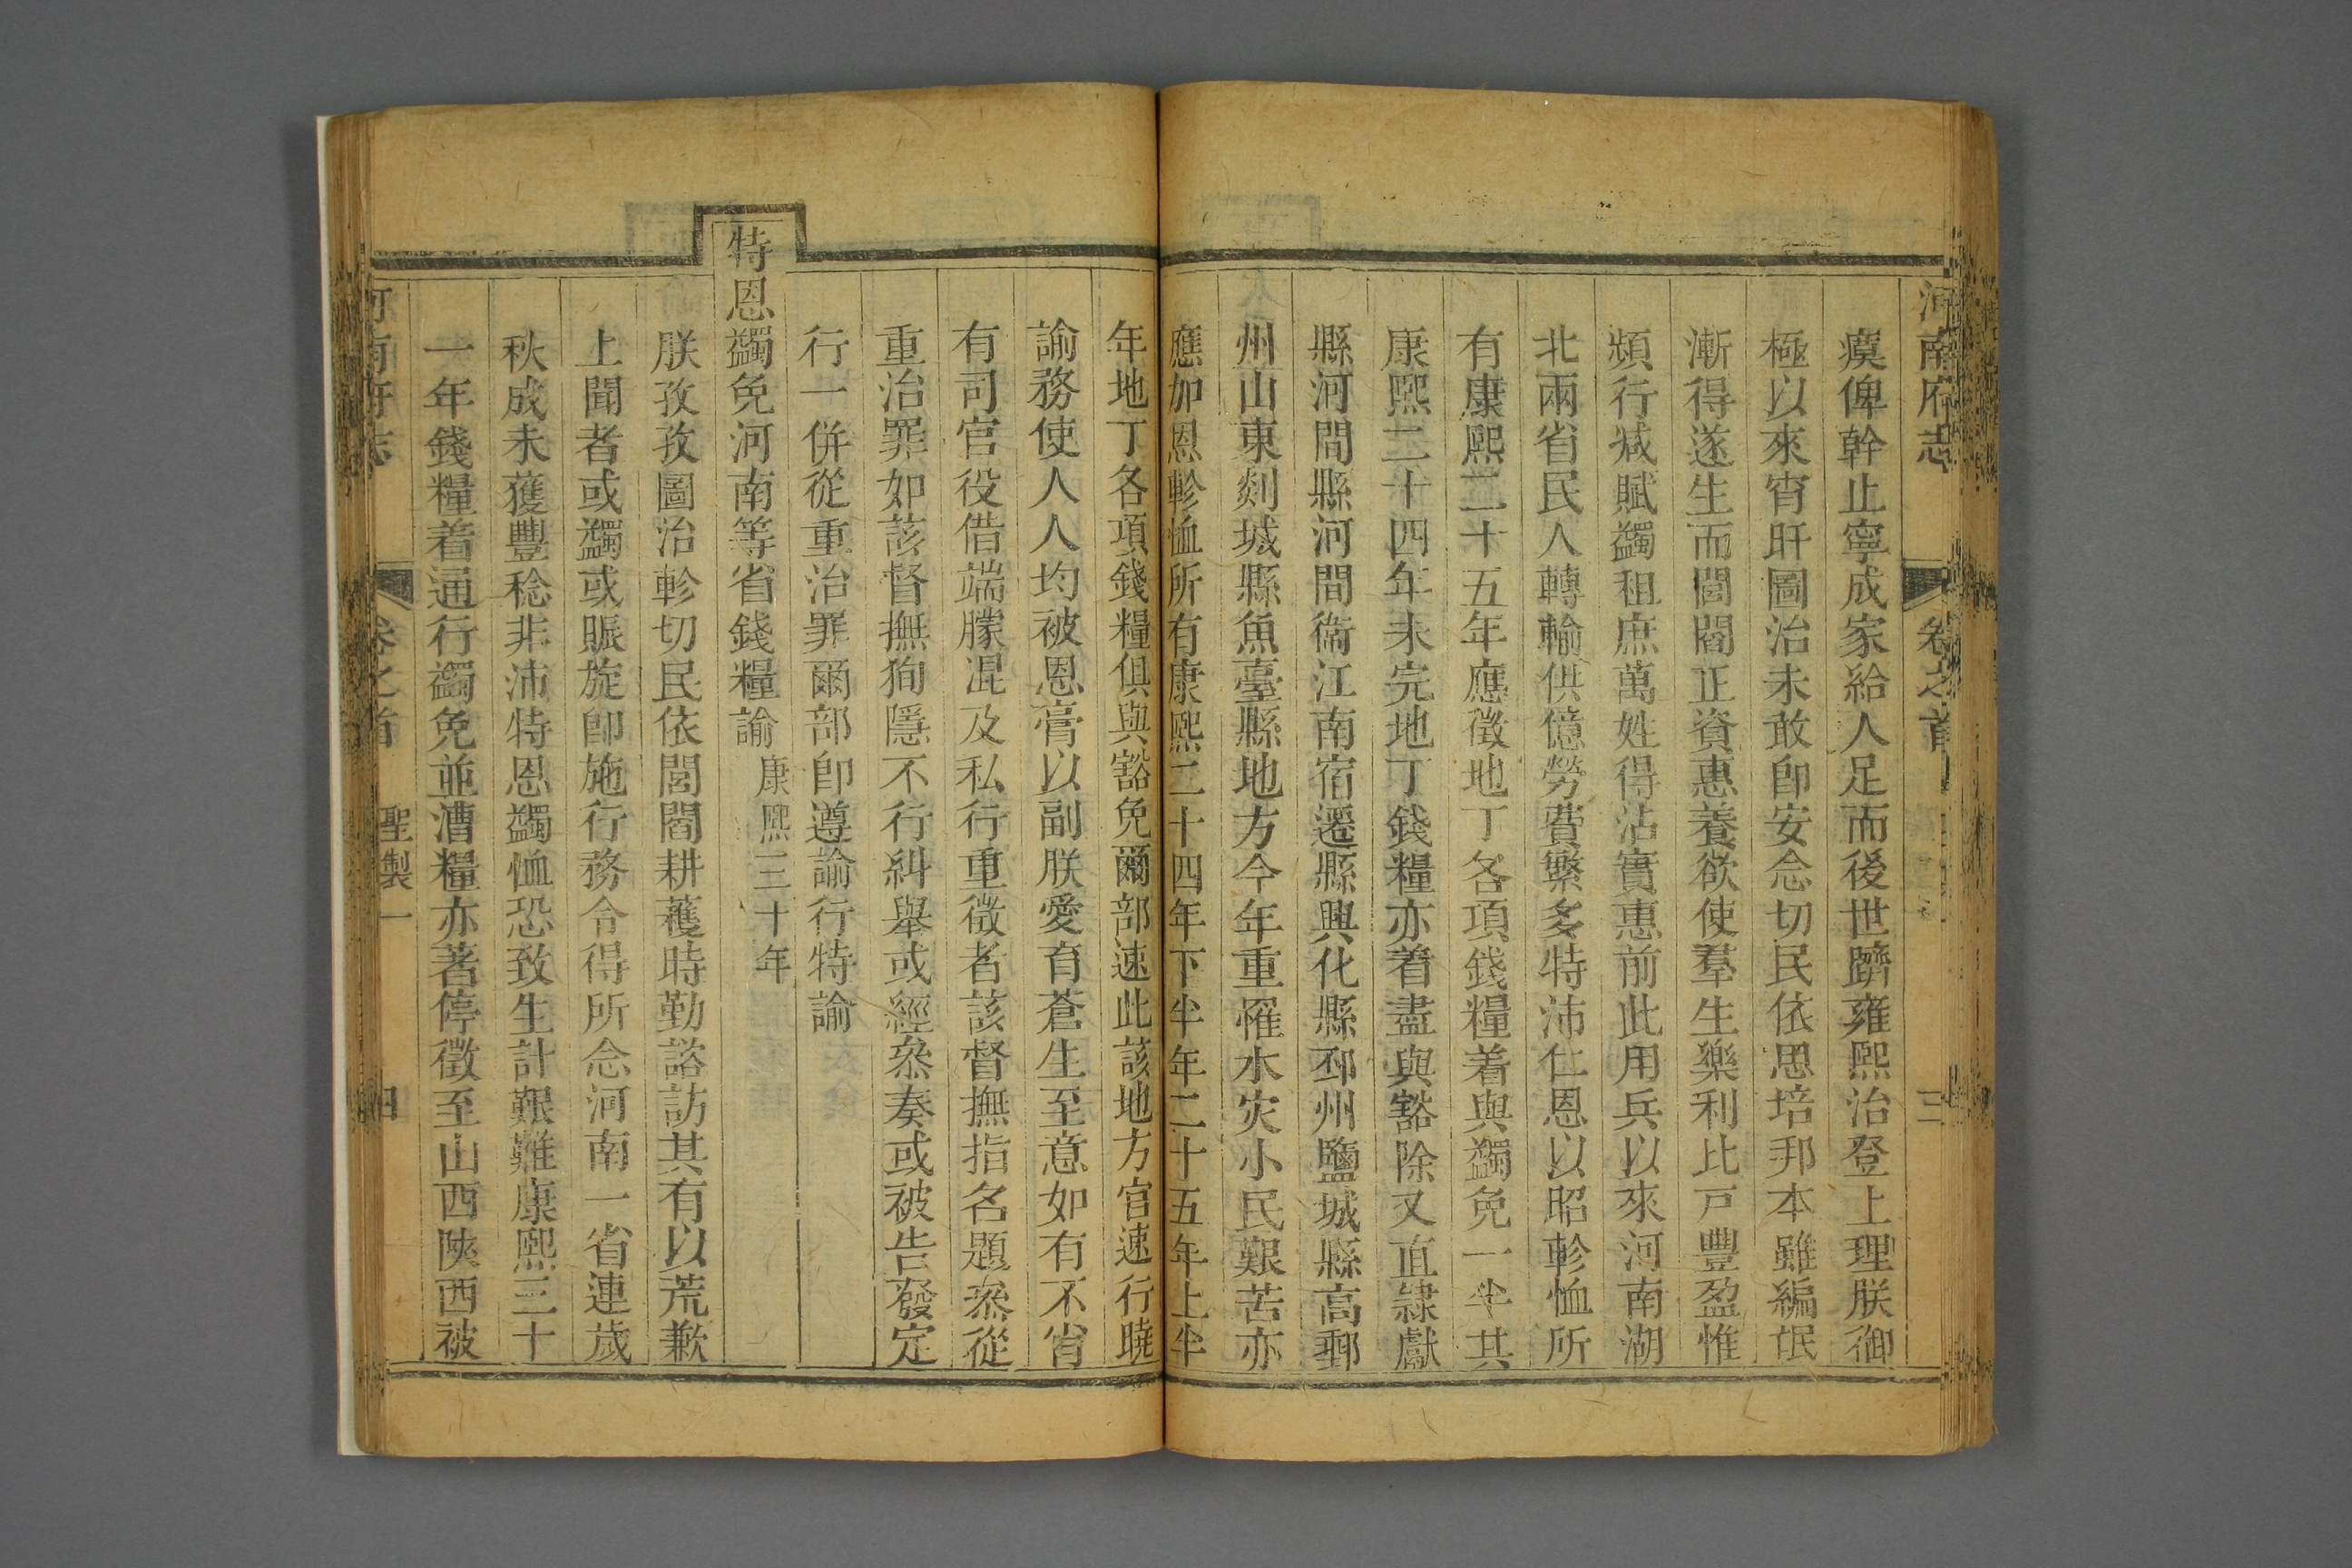 河南府志 卷之首 三
瘼俾幹止寧成家給人足而後世躋雍熙治登上理朕御
極以來宵旰圖治未敢卽安念切民依思培邦本雖編氓
漸得遂生而閭閻正資惠養欲使羣生樂利比戸豐盈惟
頻行减賦蠲租庶萬姓得沾實惠前此用兵以來河南湖
北兩省民人轉輸供億勞費繁多特沛仁恩以昭軫恤所
有康熙二十五年應徵地丁各項錢糧着與蠲免一半其
康熙二十四年未完地丁錢糧亦着盡與豁除又直隷獻
縣河間縣河間衞江南宿遷縣興化縣邳州鹽城縣高郵
州山東剡城縣魚臺縣地方今年重罹水灾小民艱苦亦
應加恩軫恤所有康熙二十四年下半年二十五年上半
年地丁各項錢糧俱與豁免爾部速此該地方官速行曉
諭務使人人均被恩膏以副朕愛育蒼生至意如有不肖
有司官役借端朦混及私行重徵者該督撫指名題叅從
重治罪如該督撫狥隱不行糾舉或經叅奏或被告發定
行一併從重治罪爾部卽遵諭行特諭
特恩蠲免河南等省錢糧諭 康熙三十年
朕孜孜圖治軫切民依閭閻耕穫時勤諮訪其有以荒歉
上聞者或蠲或賑旋卽施行務令得所念河南一省連歲
秋成未獲豐稔非沛特恩蠲恤恐致生計艱難康熙三十
一年錢糧着通行蠲免並漕糧亦著停徵至山西陝西被
河南府志 卷之首 聖製一 四